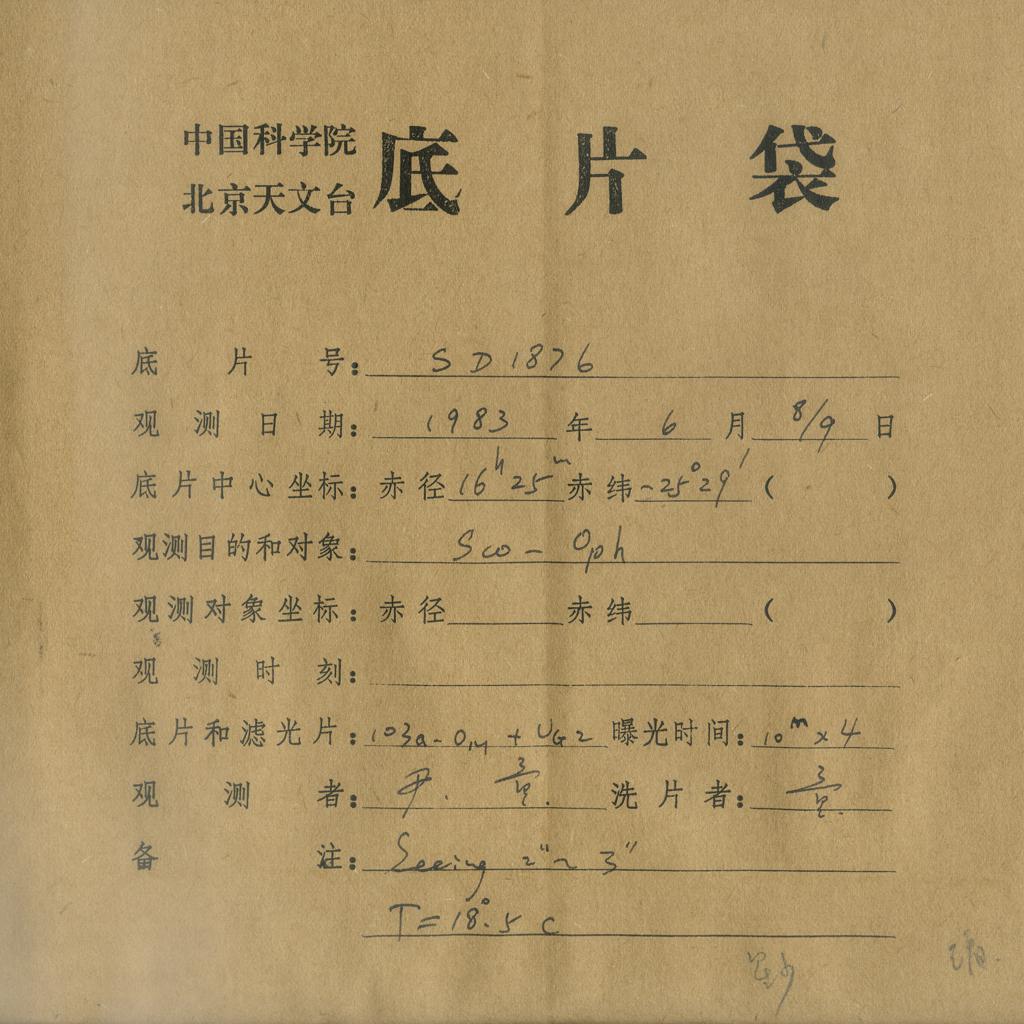 中国科学院
北京天文台
底片袋
底片号: SD1876
观测日期: 1983年 6月 8/9日
底片中心坐标: 赤径 16h25m 赤纬 -25°29′ ( )
观测目的和对象: Sco - Oph
观测对象坐标: 赤径 赤纬 ( )
观测时刻:
底片和滤光片: 103a-O, + UG2 曝光时间: 10m×4
观测者: 尹.
洗片者:
备注: Seeing 2″~3″
T=18°.5 C